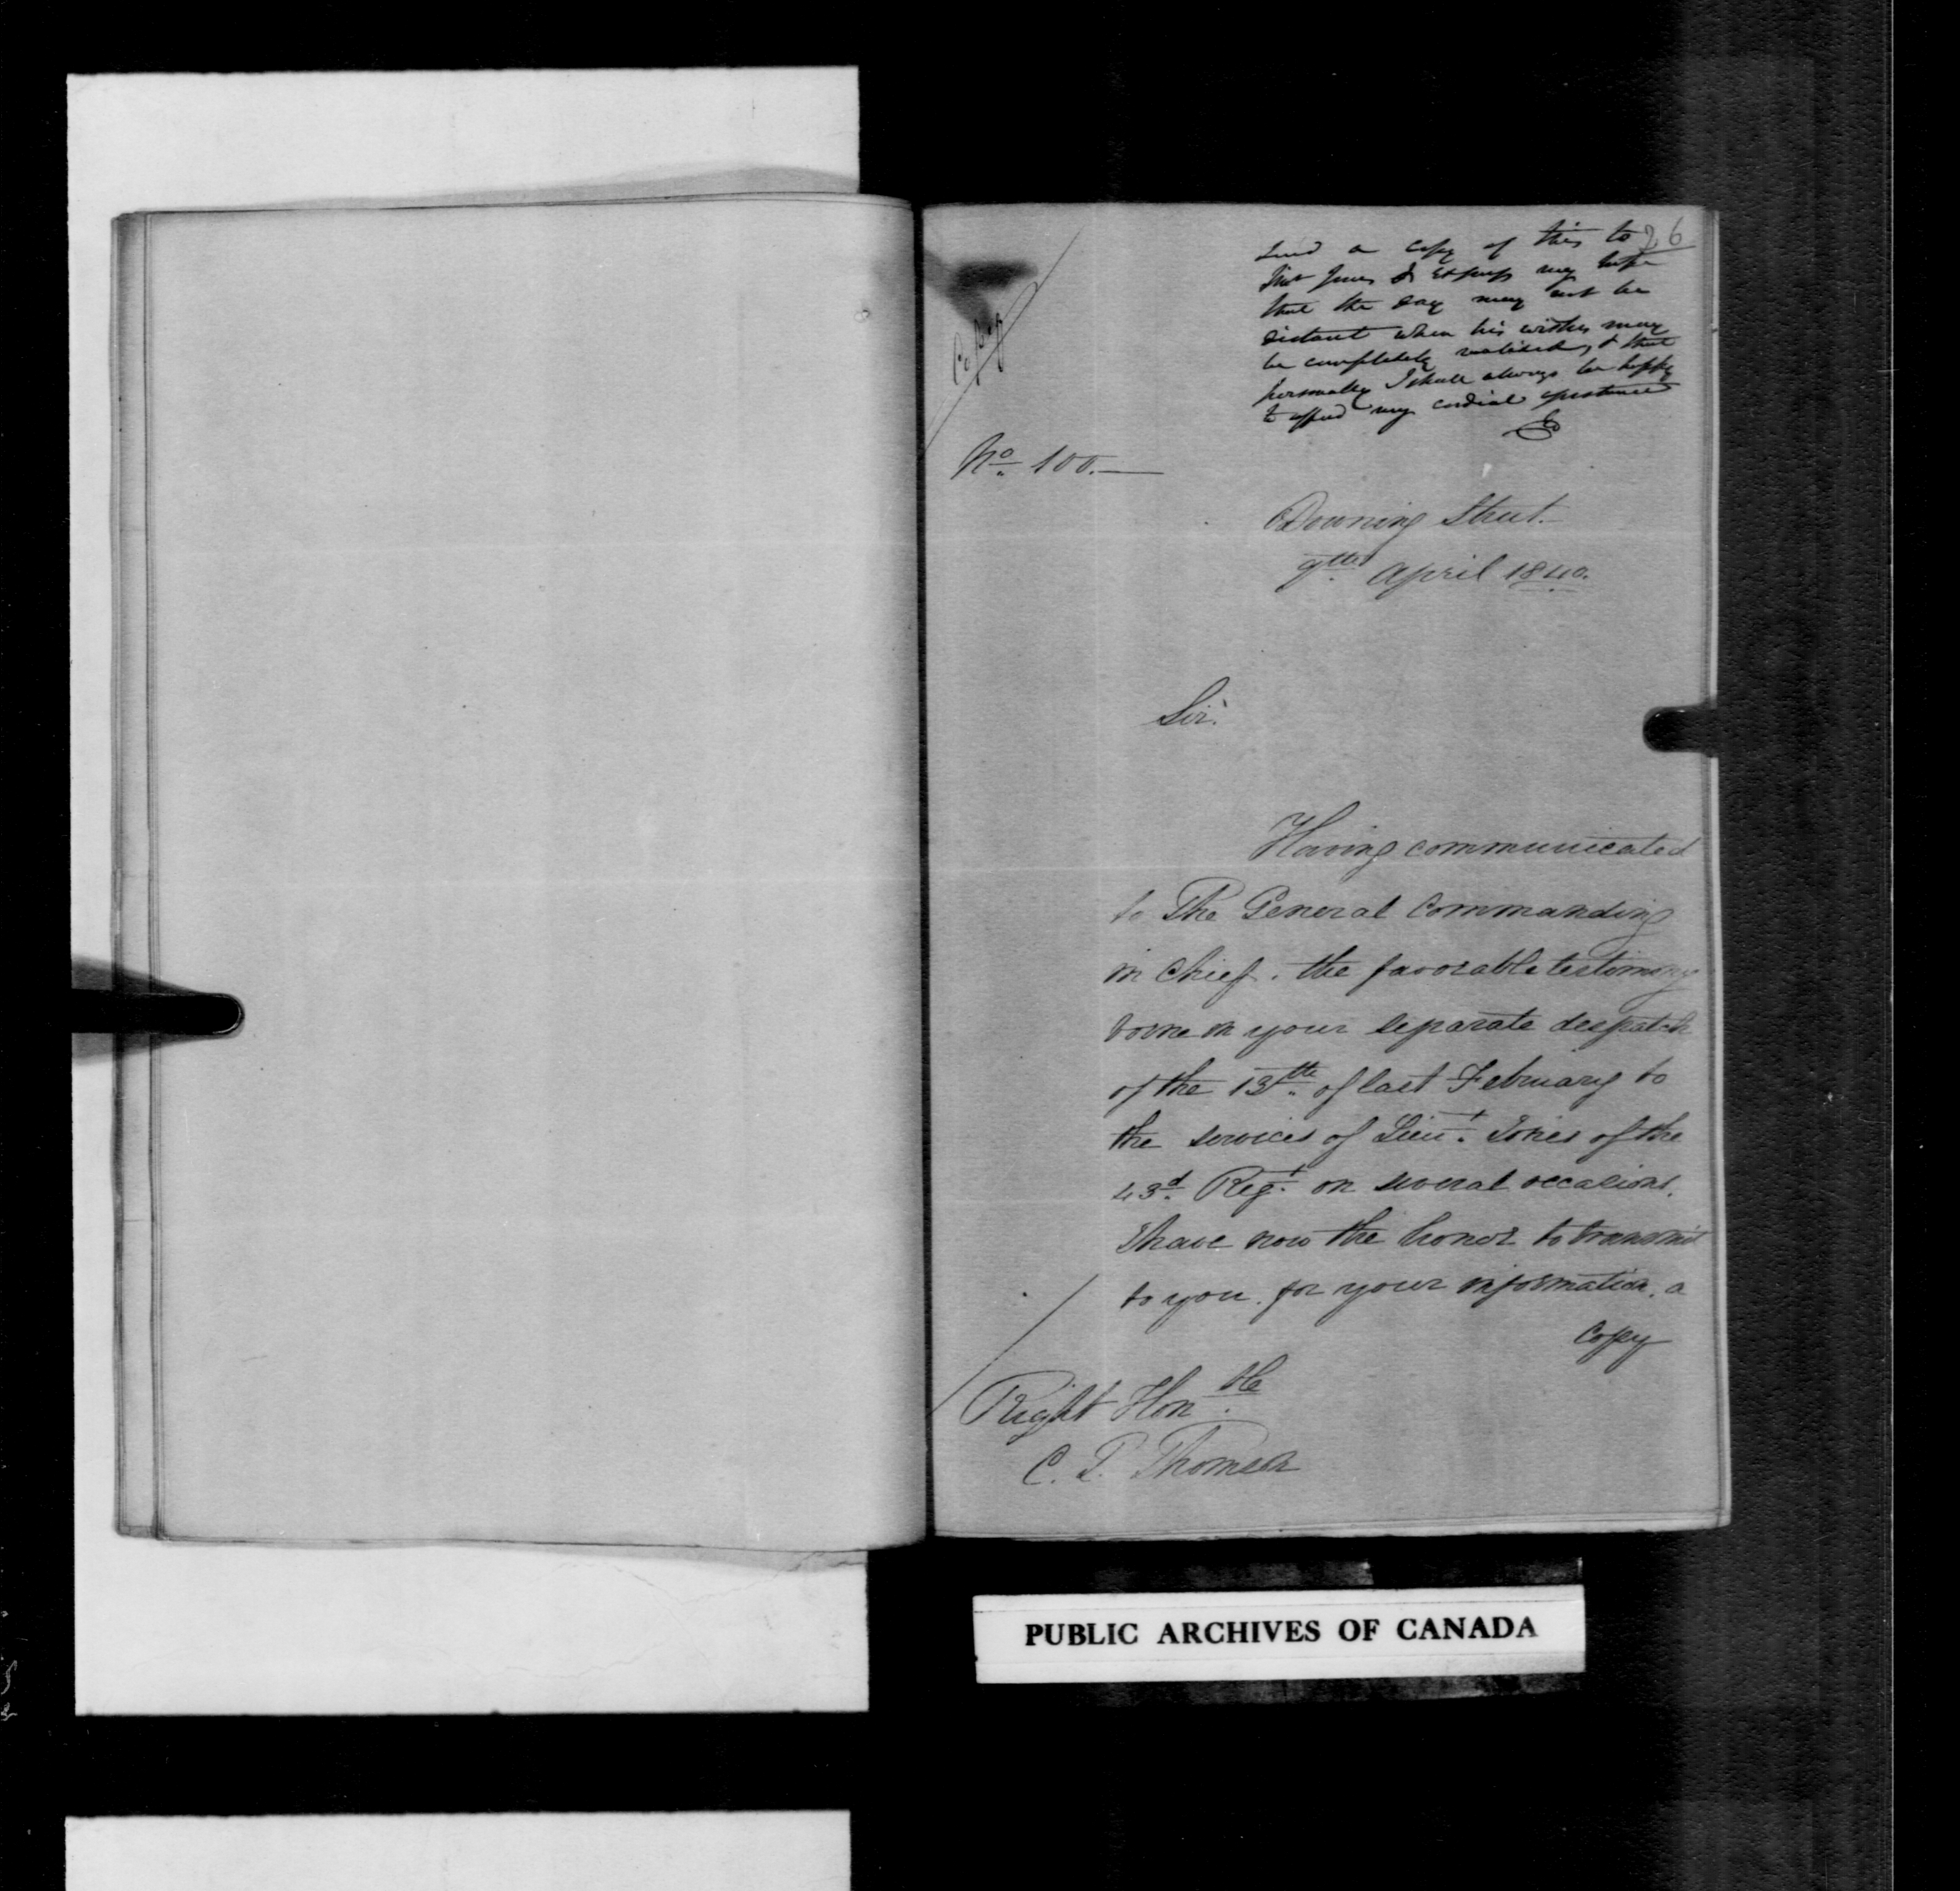 26
Send a copy of this to
Lieut Jones & express my hope
that the day may not be
distant when his wishes may
be completely realised, & that
personally I shall always be happy
to afford my cordial assistance
Copy
No. 100.
Downing Street.
9th April 1840.
Sir.
Having communicated
to The General Commanding
in Chief, the favorable testimony
borne in your separate despatch
of the 13th of last February to
the services of Lieut. Jones of the
43d. Regt. on several occasions,
I have now the honor to transmit
to you, for your information, a
Copy
Right Honble
C. P. Thomson
PUBLIC ARCHIVES OF CANADA